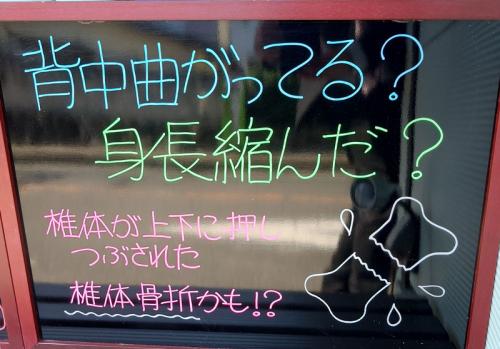 背中曲がってる?
身長縮んだ?
椎体が上下に押し
つぶされた
椎体骨折かも!?